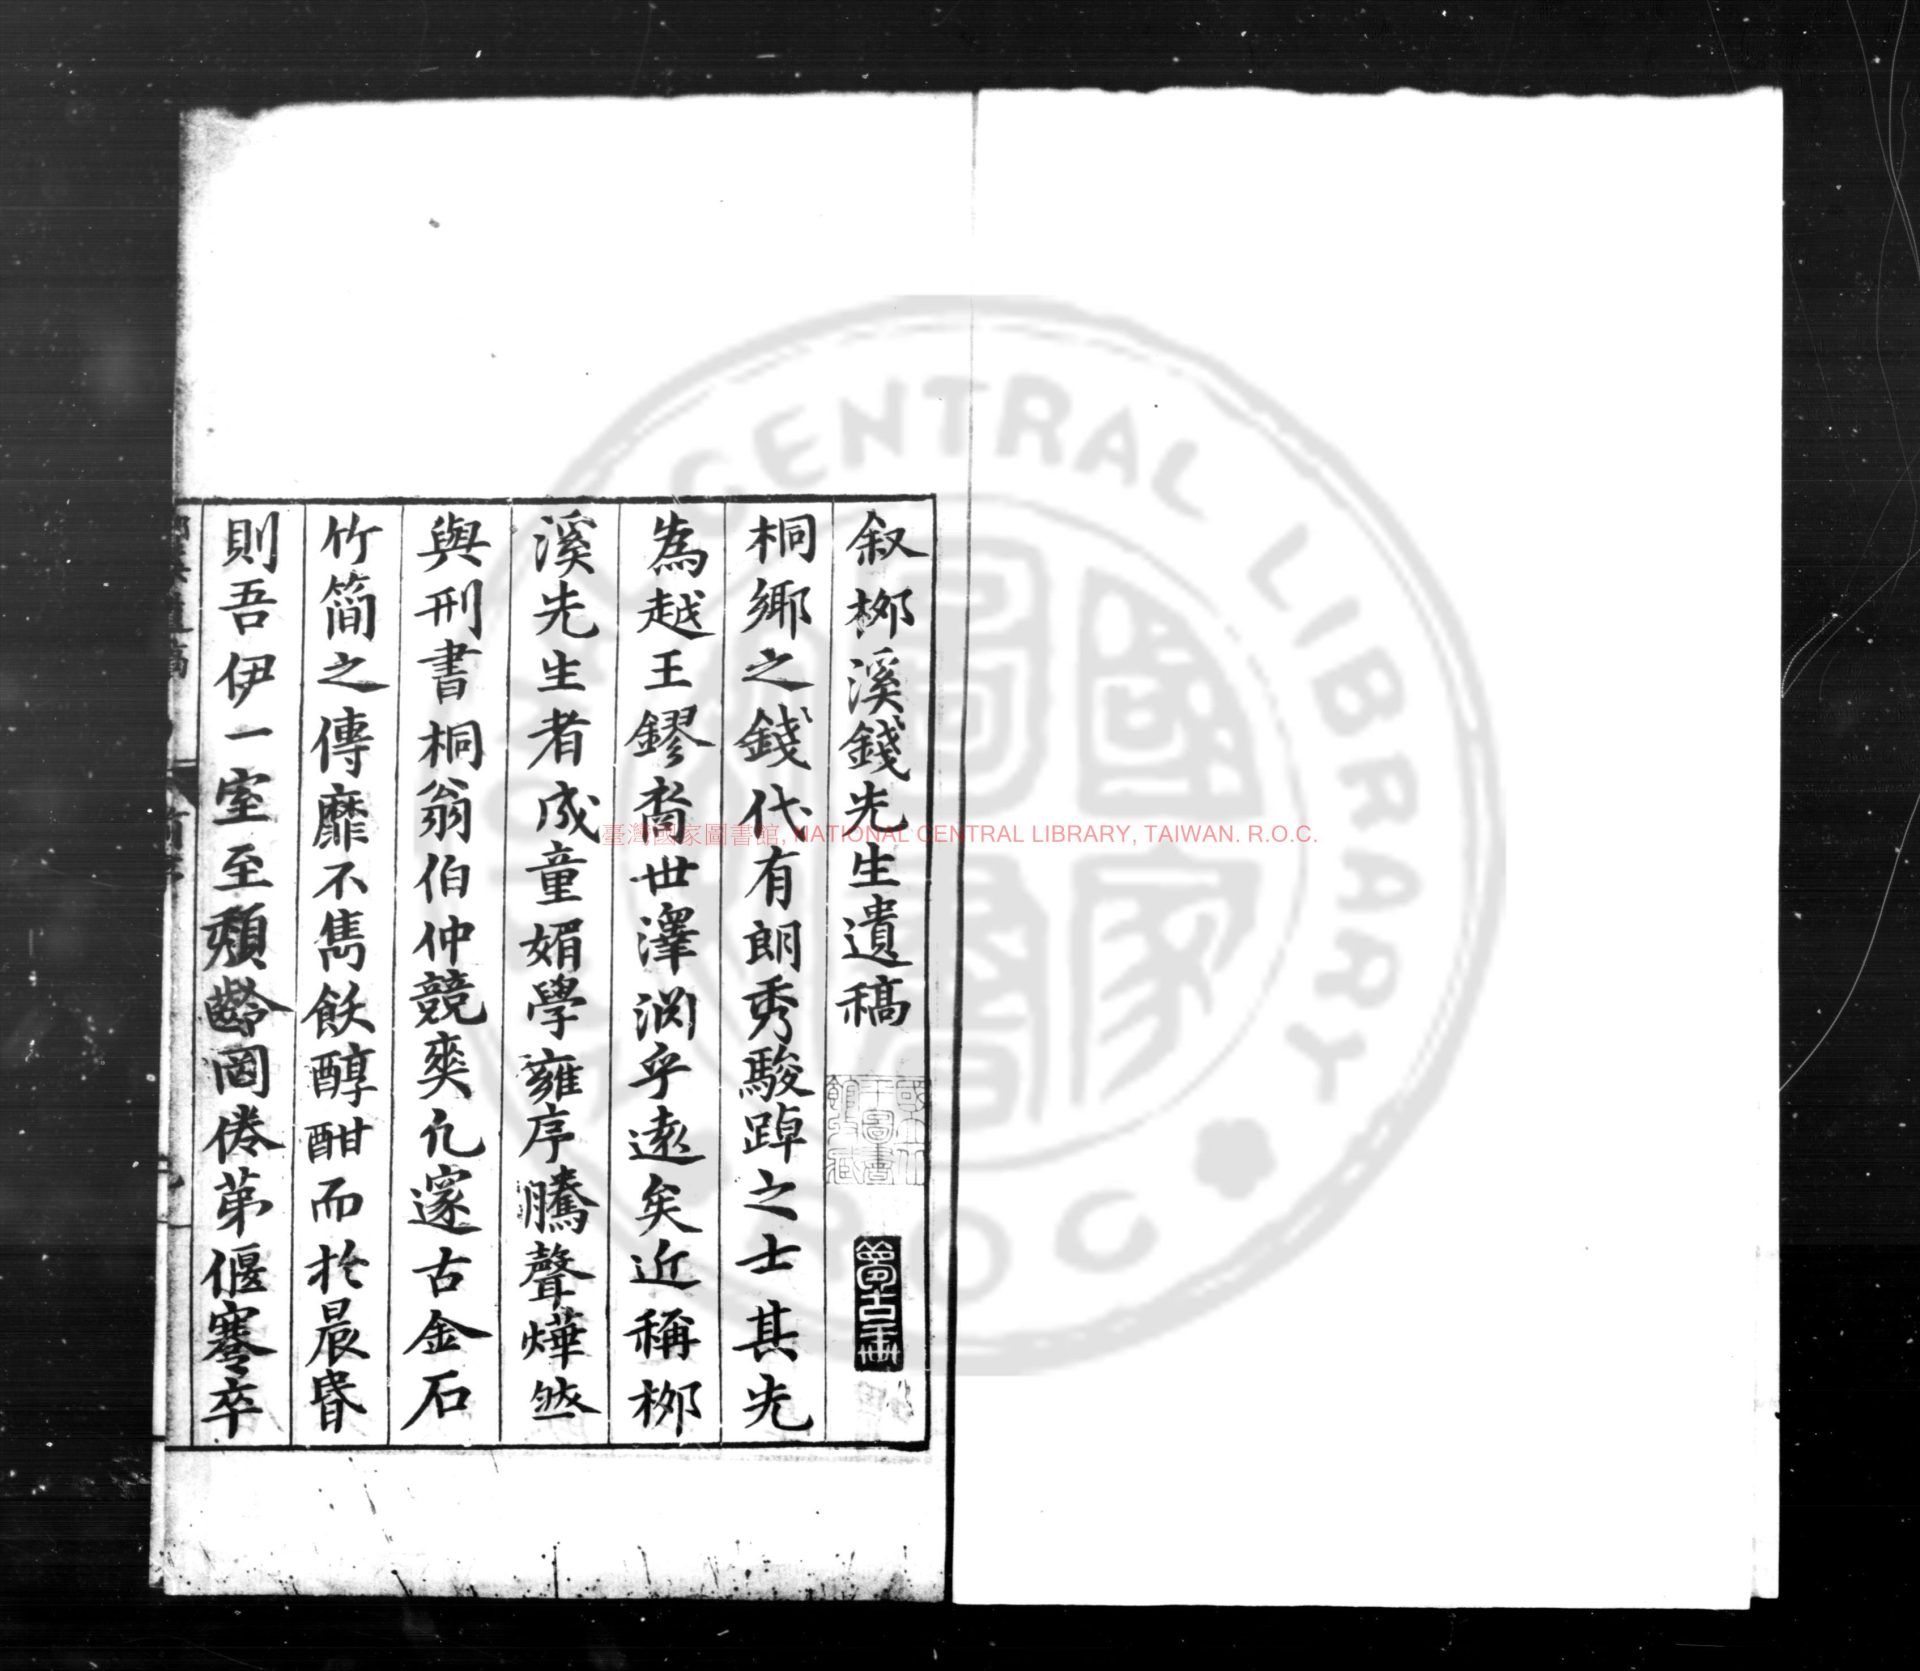 叙栁溪錢先生遺稿
桐鄉之錢代有朗秀駿踔之士其先
為越王鏐裔世澤渊乎遠矣近稱栁
溪先生者成童媚學雍序騰聲燁然
與刑書桐翁伯仲競爽凢邃古金石
竹簡之傳靡不雋飫醇酣而於晨昏
則吾伊一室至頽齡罔倦苐偃蹇卒
臺灣國家圖書館, NATIONAL CENTRAL LIBRARY, TAIWAN. R.O.C.
CENTRAL LIBRARY
R.O.C
國家圖書